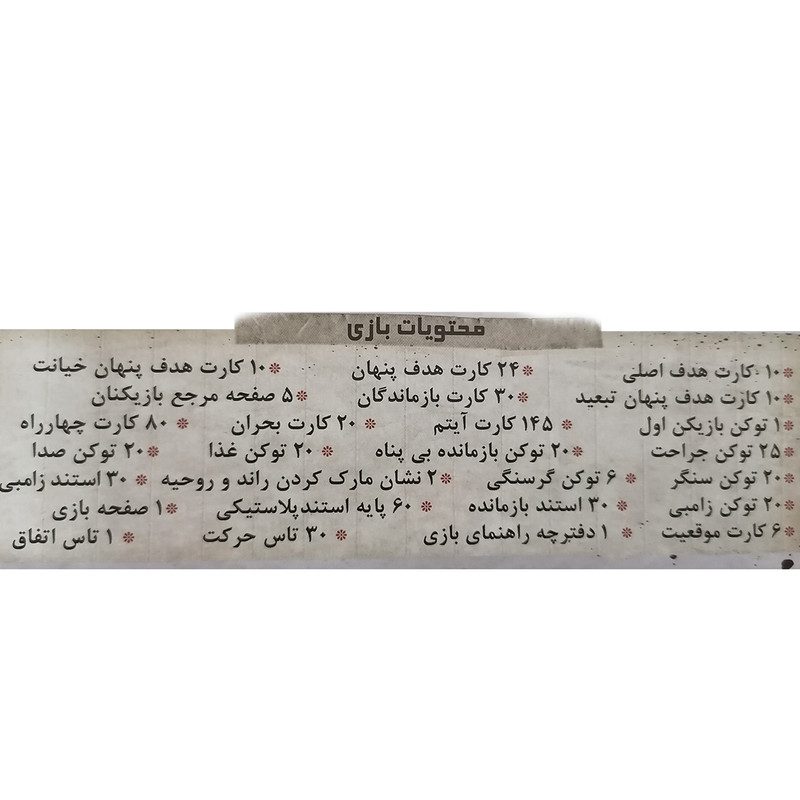 محتویات بازی
* ۱۰ کارت هدف اصلی * ۲۴ کارت هدف پنهان * ۱۰ کارت هدف پنهان خیانت
* ۱۰ کارت هدف پنهان تبعید * ۳۰ کارت بازماندگان * ۵ صفحه مرجع بازیکنان
* ۱ توکن بازیکن اول * ۱۴۵ کارت آیتم * ۲۰ کارت بحران * ۸۰ کارت چهارراه
* ۲۵ توکن جراحت * ۲۰ توکن بازمانده بی پناه * ۲۰ توکن غذا * ۲۰ توکن صدا
* ۲۰ توکن سنگر * ۶ توکن گرسنگی * ۲ نشان مارک کردن راند و روحیه * ۳۰ استند زامبی
* ۲۰ توکن زامبی * ۳۰ استند بازمانده * ۶۰ پایه استند پلاستیکی * ۱ صفحه بازی
* ۶ کارت موقعیت * ۱ دفترچه راهنمای بازی * ۳۰ تاس حرکت * ۱ تاس اتفاق